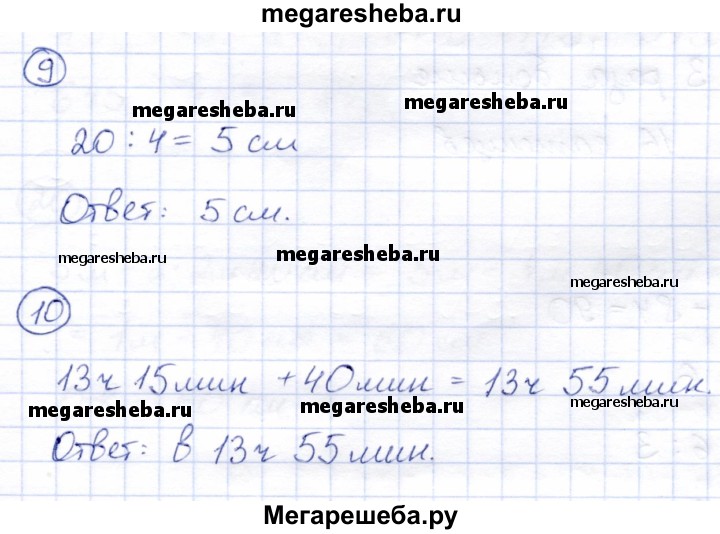 megaresheba.ru
9
megaresheba.ru
megaresheba.ru
20 : 4 = 5 см
Ответ: 5 см.
megaresheba.ru
megaresheba.ru
megaresheba.ru
10
13ч 15мин + 40мин = 13ч 55мин.
megaresheba.ru
megaresheba.ru
megaresheba.ru
Ответ: в 13ч 55мин.
Мегарешеба.ру